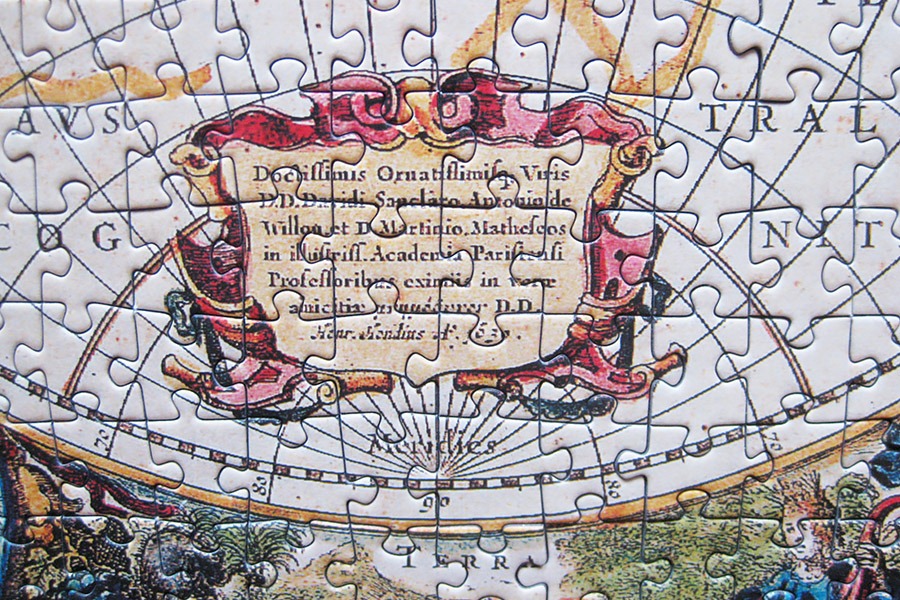 AVS
TRAL
COG
NIT
Doctissimis Ornatissimisq. Viris
D.D. Davidi Sanclaro Antonio de
Willon et D Martinio. Matheseos
in illustriss. Academia Parisiensi
Professoribus eximiis in veræ
amicitiæ D.D.
Henr. Hondius
Meridies
70
70
80
80
90
TERRA